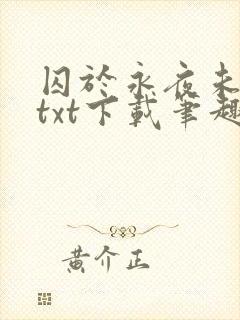 囚於永夜未
txt下載筆趣
黃介正